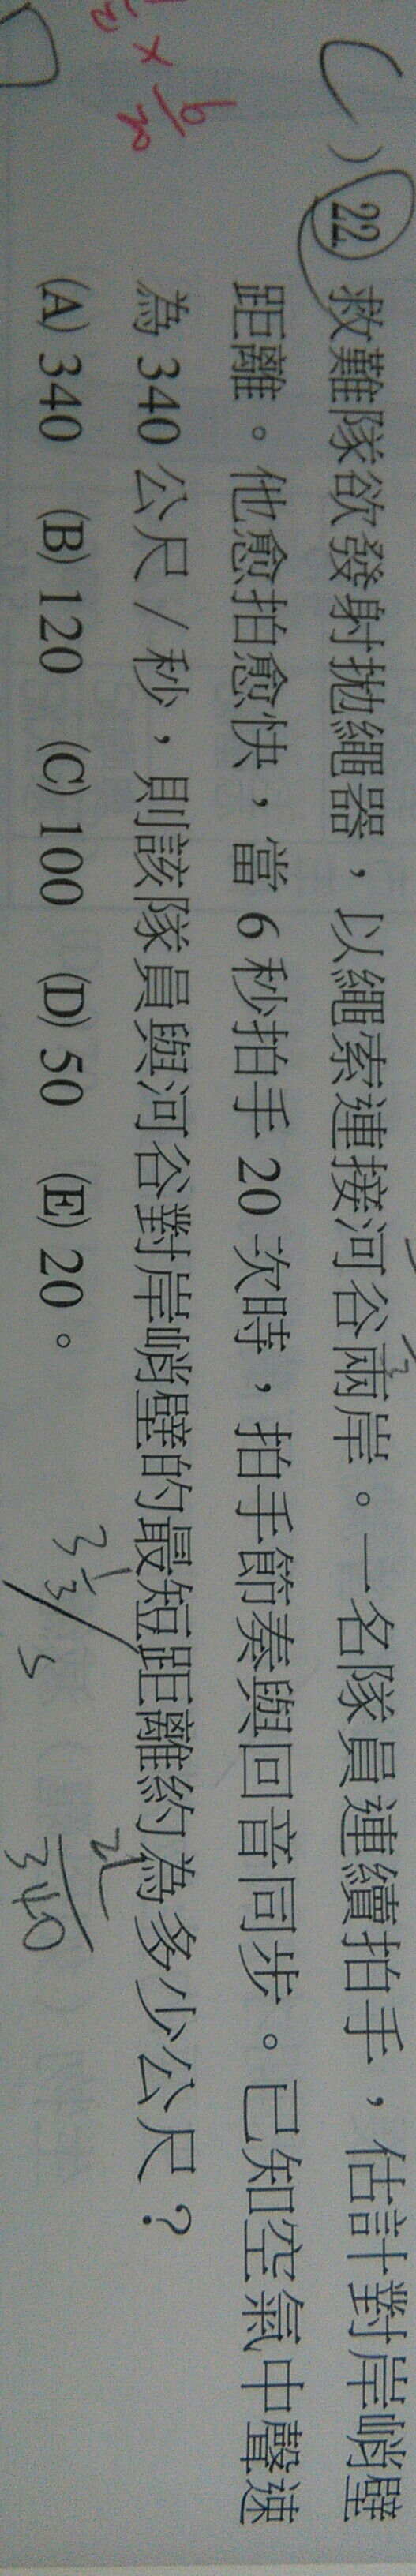 ( ) 22. 救難隊欲發射拋繩器，以繩索連接河谷兩岸。一名隊員連續拍手，估計對岸峭壁
距離。他愈拍愈快，當 6 秒拍手 20 次時，拍手節奏與回音同步。已知空氣中聲速
為 340 公尺／秒，則該隊員與河谷對岸峭壁的最短距離約為多少公尺？
(A) 340 (B) 120 (C) 100 (D) 50 (E) 20。
× 6/20
340